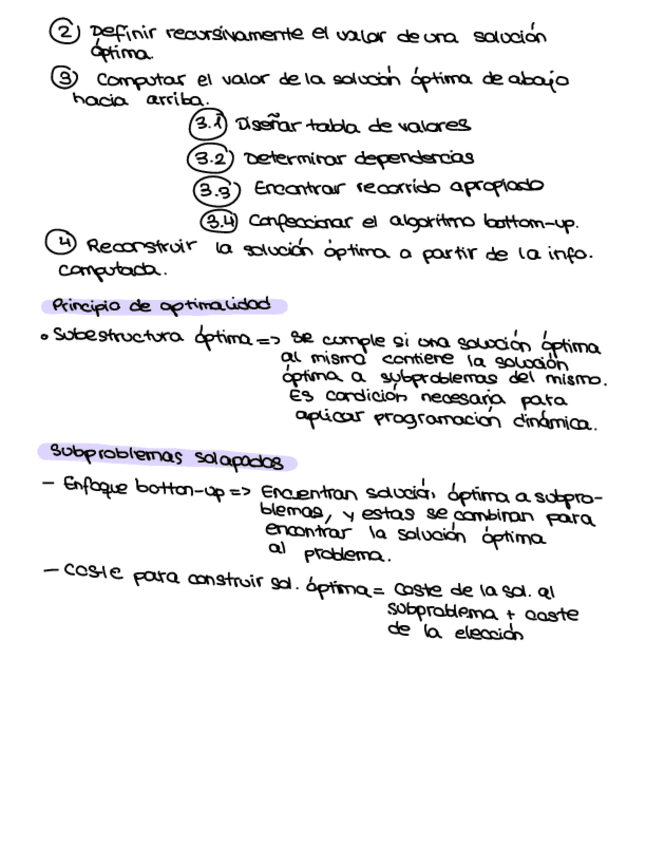 2) Definir recursivamente el valor de una solución
óptima.
3) Computar el valor de la solución óptima de abajo
hacia arriba.
3.1) Diseñar tabla de valores
3.2) Determinar dependencias
3.3) Encontrar recorrido apropiado
3.4) Confeccionar el algoritmo bottom-up.
4) Reconstruir la solución óptima a partir de la info.
computada.
Principio de optimalidad
• Subestructura óptima => Se cumple si una solución óptima
al mismo contiene la solución
óptima a subproblemas del mismo.
Es condición necesaria para
aplicar programación dinámica.
Subproblemas solapados
- Enfoque botton-up => Encuentran solución óptima a subpro-
blemas, y estas se combinan para
encontrar la solución óptima
al problema.
- Coste para construir sol. óptima = coste de la sol. al
subproblema + coste
de la elección